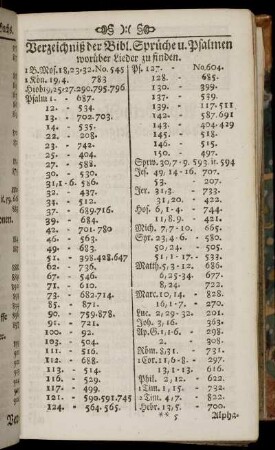 Verzeichniß der Bibl. Sprüche u. Psalmen
worüber Lieder zu finden.
1 B. Mos. 18, 23-32. No. 545
1 Kön. 19, 4. 783
Hiob 19, 25-27. 290. 795. 796
Psalm 1. - 687.
12. - 534.
13. - 702. 703.
14. - 535.
22. - 208.
23. - 724.
25. - 404.
27. - 588.
30. - 530.
31, 1-6. 586.
32. - 437.
34. - 512.
37. - 689. 716.
39. - 684.
42. - 701. 780
46. - 563.
49. - 683.
51. - 398. 428. 647
62. - 736.
67. - 546.
71. - 610.
73. - 682. 714.
85. - 871.
90. - 759. 878.
91. - 721.
100. - 92.
103. - 504.
111. - 516.
113. - 514.
116. - 529.
117. - 499.
121. - 590. 591. 745
124. - 564. 565.
Ps. 127. - No. 604.
128. - 685.
130. - 399.
137. - 539.
139. - 117. 511
142. - 587. 691
143. - 404. 429
145. - 518.
146. - 515.
150. - 497.
Sprw. 30, 7-9. 593. it. 594
Jes. 49, 14-16. 707.
53. - 207.
Jer. 31, 3. - 733.
31, 20. - 422.
Hos. 6, 1-4. - 744.
11, 8. 9. - 421.
Mich. 7, 7-10. - 665.
Spr. 23, 4-6. - 580.
50, 24. - 505.
51, 1-17. - 533.
Matth. 5, 3-12. - 686.
6, 25-34. 677.
8, 24. - 722.
Marc. 10, 14. - 828.
16, 1-7. - 270.
Luc. 2, 29-32. 201.
Joh. 3, 16. 363.
Ap. G. 1, 1-6. - 298.
2. - 308.
Röm. 8, 31. - 731.
1 Cor. 11, 6-8 - 366.
13, 1-13. - 616.
Phil. 2, 12. - 622.
1 Tim. 1, 15. - 732.
2 Tim. 4, 7. - 822.
Hebr. 13, 5. - 700.
** 5 Alpha-